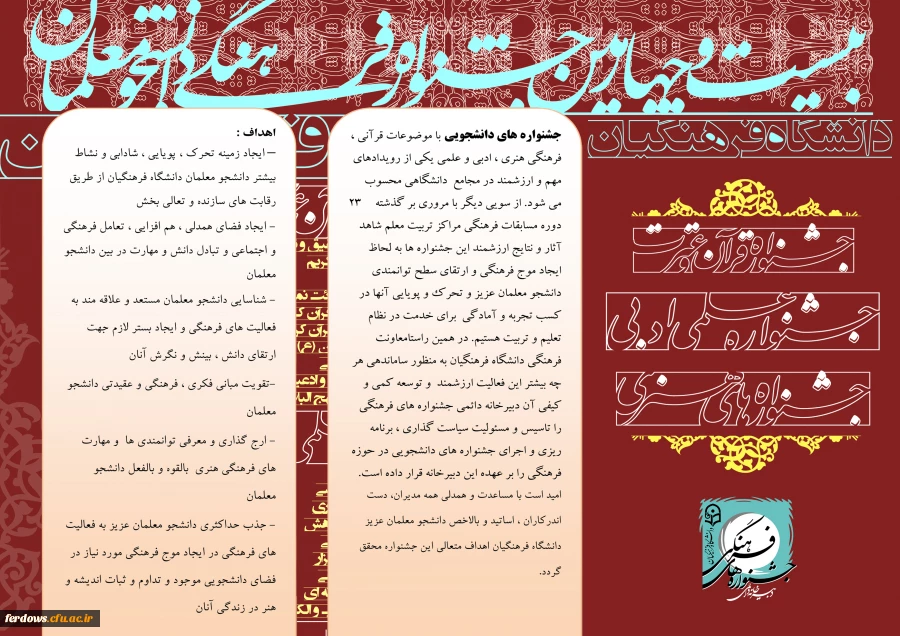 بیست و چهارمین جشنواره فرهنگی دانشجو معلمان
دانشگاه فرهنگیان
جشنواره قرآن و عترت
جشنواره علمی ادبی
جشنواره های هنری
فرهنگی
جشنواره های
جشنواره های دانشجویی با موضوعات قرآنی ،
فرهنگی هنری ، ادبی و علمی یکی از رویدادهای
مهم و ارزشمند در مجامع دانشگاهی محسوب
می شود. از سویی دیگر با مروری بر گذشته ۲۳
دوره مسابقات فرهنگی مراکز تربیت معلم شاهد
آثار و نتایج ارزشمند این جشنواره ها به لحاظ
ایجاد موج فرهنگی و ارتقای سطح توانمندی
دانشجو معلمان عزیز و تحرك و پویایی آنها در
کسب تجربه و آمادگی برای خدمت در نظام
تعلیم و تربیت هستیم. در همین راستامعاونت
فرهنگی دانشگاه فرهنگیان به منظور ساماندهی هر
چه بیشتر این فعالیت ارزشمند و توسعه کمی و
کیفی آن دبیرخانه دائمی جشنواره های فرهنگی
را تاسیس و مسئولیت سیاست گذاری ، برنامه
ریزی و اجرای جشنواره های دانشجویی در حوزه
فرهنگی را بر عهده این دبیرخانه قرار داده است.
امید است با مساعدت و همدلی همه مدیران، دست
اندرکاران ، اساتید و بالاخص دانشجو معلمان عزیز
دانشگاه فرهنگیان اهداف متعالی این جشنواره محقق
گردد.
اهداف :
– ایجاد زمینه تحرک ، پویایی ، شادابی و نشاط
بیشتر دانشجو معلمان دانشگاه فرهنگیان از طریق
رقابت های سازنده و تعالی بخش
- ایجاد فضای همدلی ، هم افزایی ، تعامل فرهنگی
و اجتماعی و تبادل دانش و مهارت در بین دانشجو
معلمان
- شناسایی دانشجو معلمان مستعد و علاقه مند به
فعالیت های فرهنگی و ایجاد بستر لازم جهت
ارتقای دانش ، بینش و نگرش آنان
-تقویت مبانی فکری ، فرهنگی و عقیدتی دانشجو
معلمان
- ارج گذاری و معرفی توانمندی ها و مهارت
های فرهنگی هنری بالقوه و بالفعل دانشجو
معلمان
- جذب حداکثری دانشجو معلمان عزیز به فعالیت
های فرهنگی در ایجاد موج فرهنگی مورد نیاز در
فضای دانشجویی موجود و تداوم و ثبات اندیشه و
هنر در زندگی آنان
ferdows.cfu.ac.ir